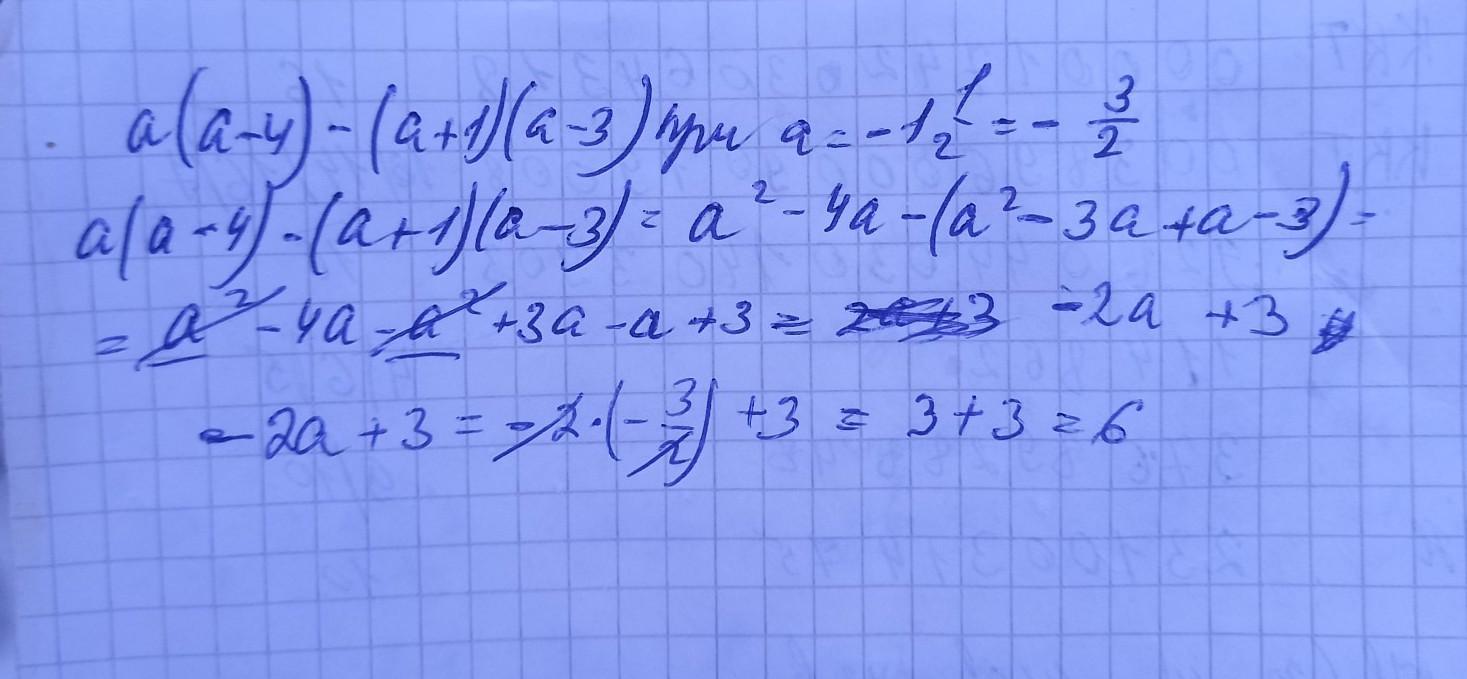 a(a-4)-(a+1)(a-3) при a = -1 1/2 = - 3/2
a(a-4)-(a+1)(a-3) = a² - 4a - (a² - 3a + a - 3) =
= a² - 4a - a² + 3a - a + 3 = -2a + 3
-2a + 3 = -2·(-3/2) + 3 = 3 + 3 = 6